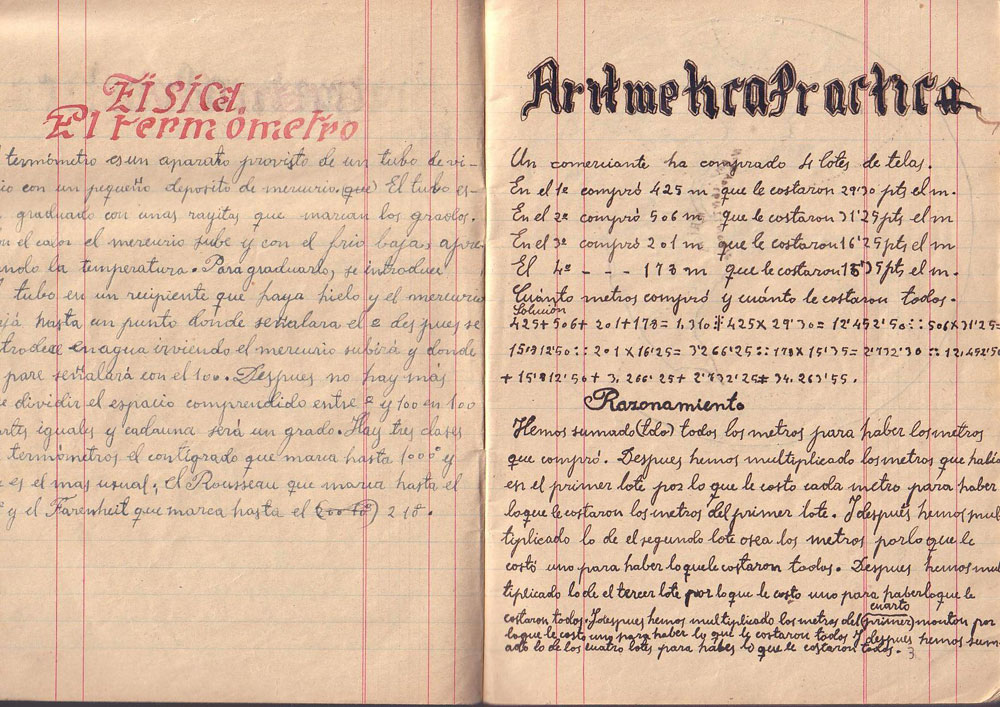 Física.
El termómetro
termómetro es un aparato provisto de un tubo de vi-
io con un pequeño deposito de mercurio. (que) El tubo es-
graduado con unas rayitas que marcan los grados.
on el calor el mercurio sube y con el frio baja, apre-
endo la temperatura. Para graduarlo, se introduce
tubo en un recipiente que haya hielo y el mercurio
ajá hasta un punto donde señalara el º des pues se
troduce en agua irviendo el mercurio subirá y donde
pare señalará con el 100. Despues no hay más
e dividir el espacio comprendido entre º y 100 en 100
artes iguales y cada una será un grado. Hay tres clases
termómetros el contigrado que marca hasta 100º y
e es el mas usual, el Rousseau que marca hasta el
º y el Farenheit que marca hasta el 218.
Aritmetica Practica
Un comerciante ha comprado 4 lotes de telas.
En el 1º compró 425 m que le costaron 29'30 pts el m.
En el 2º compró 506 m que le costaron 31'25 pts el m
En el 3º compró 201 m que le costaron 16'25 pts el m
El 4º - - - 178 m que le costaron 15'35 pts el m.
Cuánto metros compró y cuánto le costaron todos.
Solución
425+506+201+178= 1,310 :: 425X 29'30= 12'452'50 :: 506X31'25=
15'812'50 :: 201 X 16'25= 3'266'25 :: 178 X 15'35= 2'732'30 :: 12,452'50
+ 15'812'50 + 3,266'25 + 2'732'25= 34.263'55.
Razonamiento
Hemos sumado (tdo) todos los metros para haber los metros
que compró. Despues hemos multiplicado los metros que habia
en el primer lote por lo que le costo cada metro para haber
lo que le costaron los metros del primer lote. I después hemos mul
tiplicado lo de el segundo lote osea los metros por lo que le
costó uno para haber lo que le costaron todos. Despues hemos mul
tiplicado lo de el tercer lote por lo que le costo uno para haber lo que le
cuarto
costaron todos. I despues hemos multiplicado los metros del (primer) monton por
lo que le costo uno para haber lo que le costaron todos I despues hemos sum-
ado lo de los cuatro lotes para haber lo que le costaron todos. 3